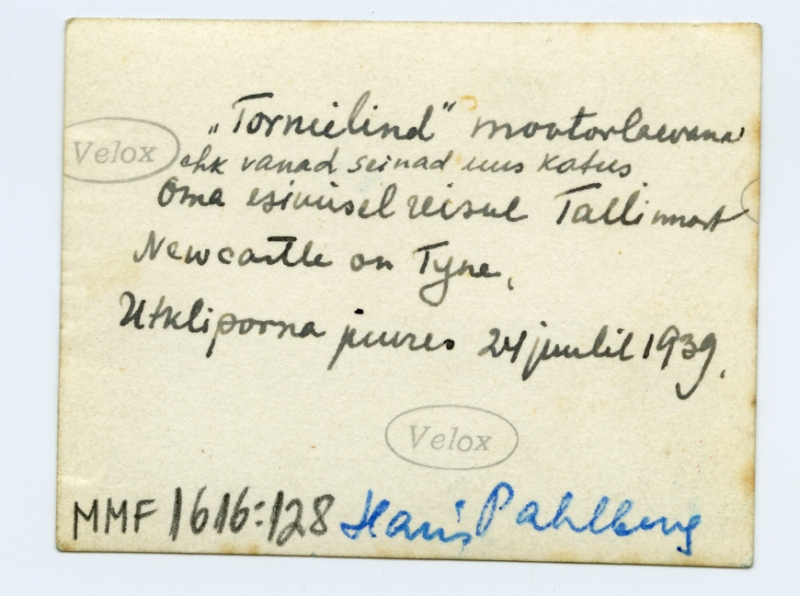 „Tornilind" mootorlaevana
Velox
ehk vanad seinad uus katus
Oma esimisel reisul Tallinnast
Newcastle on Tyne,
Utkliporna juures 24 juulil 1939.
Velox
MMF 1616:128 Hans Pahlberg